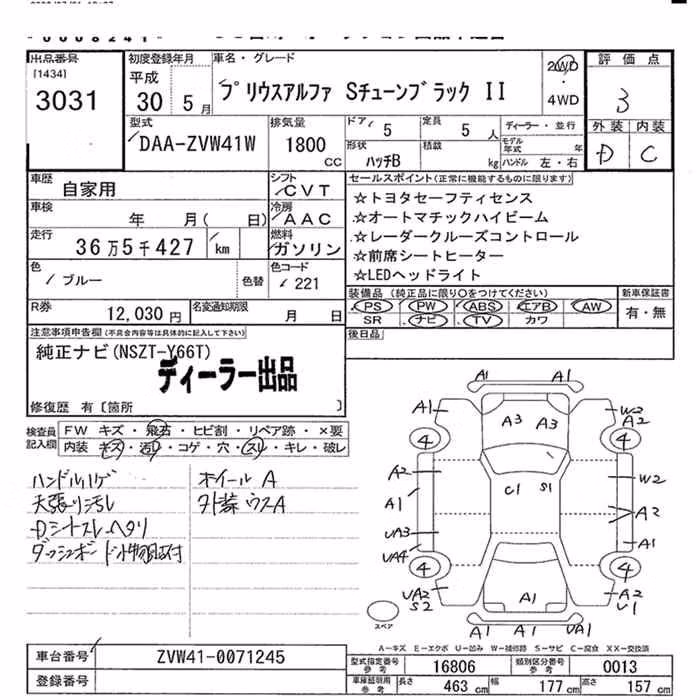 出品番号
[1434]
3031
初度登録年月
平成
30 5月
車名・グレード
プリウスアルファ Sチューンブラック II
2WD
・
4WD
評価点
3
外装 内装
D C
型式
DAA-ZVW41W
排気量
1800
CC
ドア
5
定員
5 人
形状
ハッチB
積載
kg
ディーラー・並行
モデル年式 年
ハンドル 左・右
車歴
自家用
シフト
CVT
車検
年 月( 日)
冷房
AAC
走行
36万5千427 km
燃料
ガソリン
色
ブルー
色替
色コード
221
R券
12,030 円
名変通知期限
月 日
セールスポイント(正常に機能するものに限ります)
☆トヨタセーフティセンス
☆オートマチックハイビーム
☆レーダークルーズコントロール
☆前席シートヒーター
☆LEDヘッドライト
装備品 (純正品に限り○をつけてください)
PS PW ABS エアB AW
SR ナビ TV カワ
新車保証書
有・無
後日品
注意事項申告欄(不具合内容等は具体的に記入して下さい)
純正ナビ(NSZT-Y66T)
ディーラー出品
修復歴 有〔箇所 〕
検査員
記入欄
FW キズ・飛石・ヒビ割・リペア跡・×要
内装 キズ・汚れ・コゲ・穴・スレ・キレ・破レ
ハンドルハゲ
天張リ汚レ
Dシートスレ、ヘタリ
ダッシュボード小物跡付
ホイール A
外装ウスA
A1 A1
A1 A3 A3 W2
A2
4 4
A2 C1 S1 W2
A1 A2
UA3 A1
UA4
4 4
UA2 A1 A2
S2 U1
A1 A1 UA1
スペア
A-キズ E-エクボ U-凹み W-補修跡 S-サビ C-腐食 XX-交換済
車台番号
ZVW41-0071245
登録番号
型式指定番号
参考
16806
類別区分番号
参考
0013
車庫証明用
参考
長さ 463 cm 幅 177 cm 高さ 157 cm